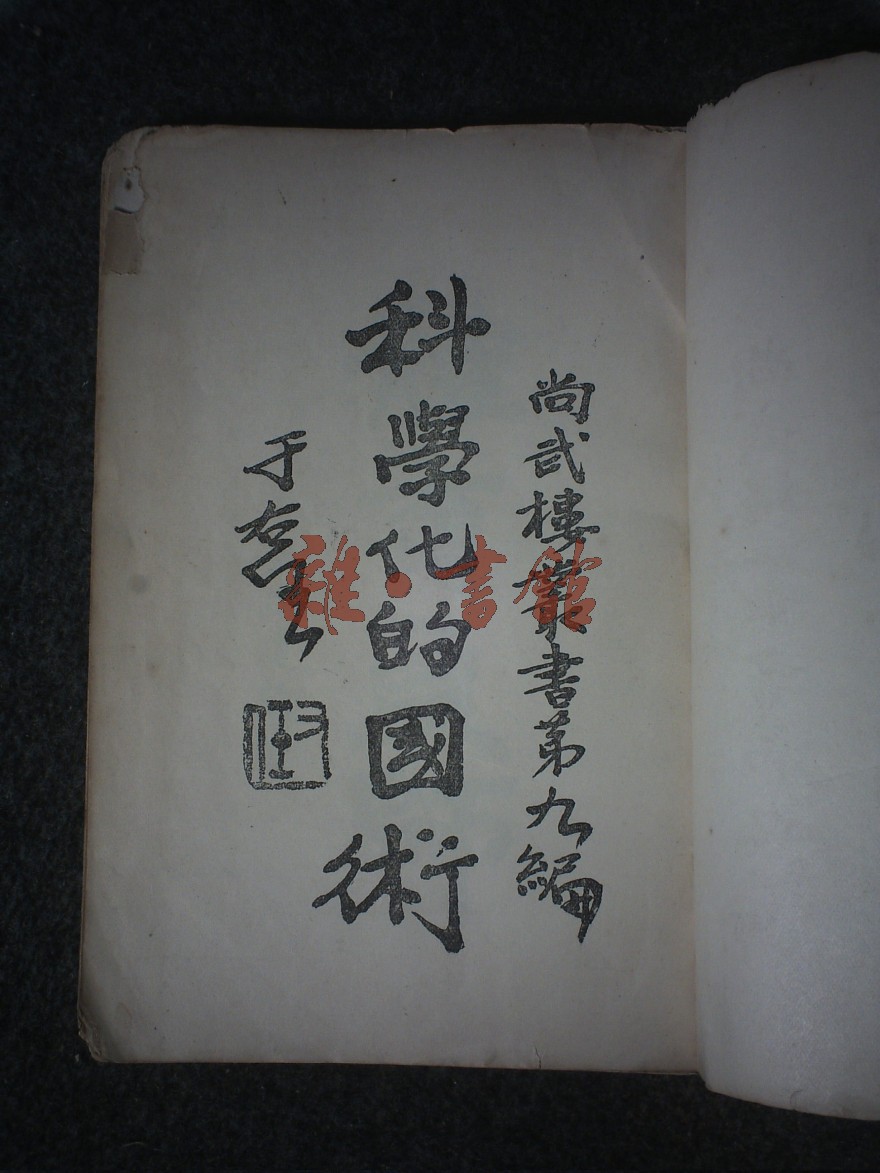 尚武樓叢書第九編
科學化的國術
于右任
雜·書館